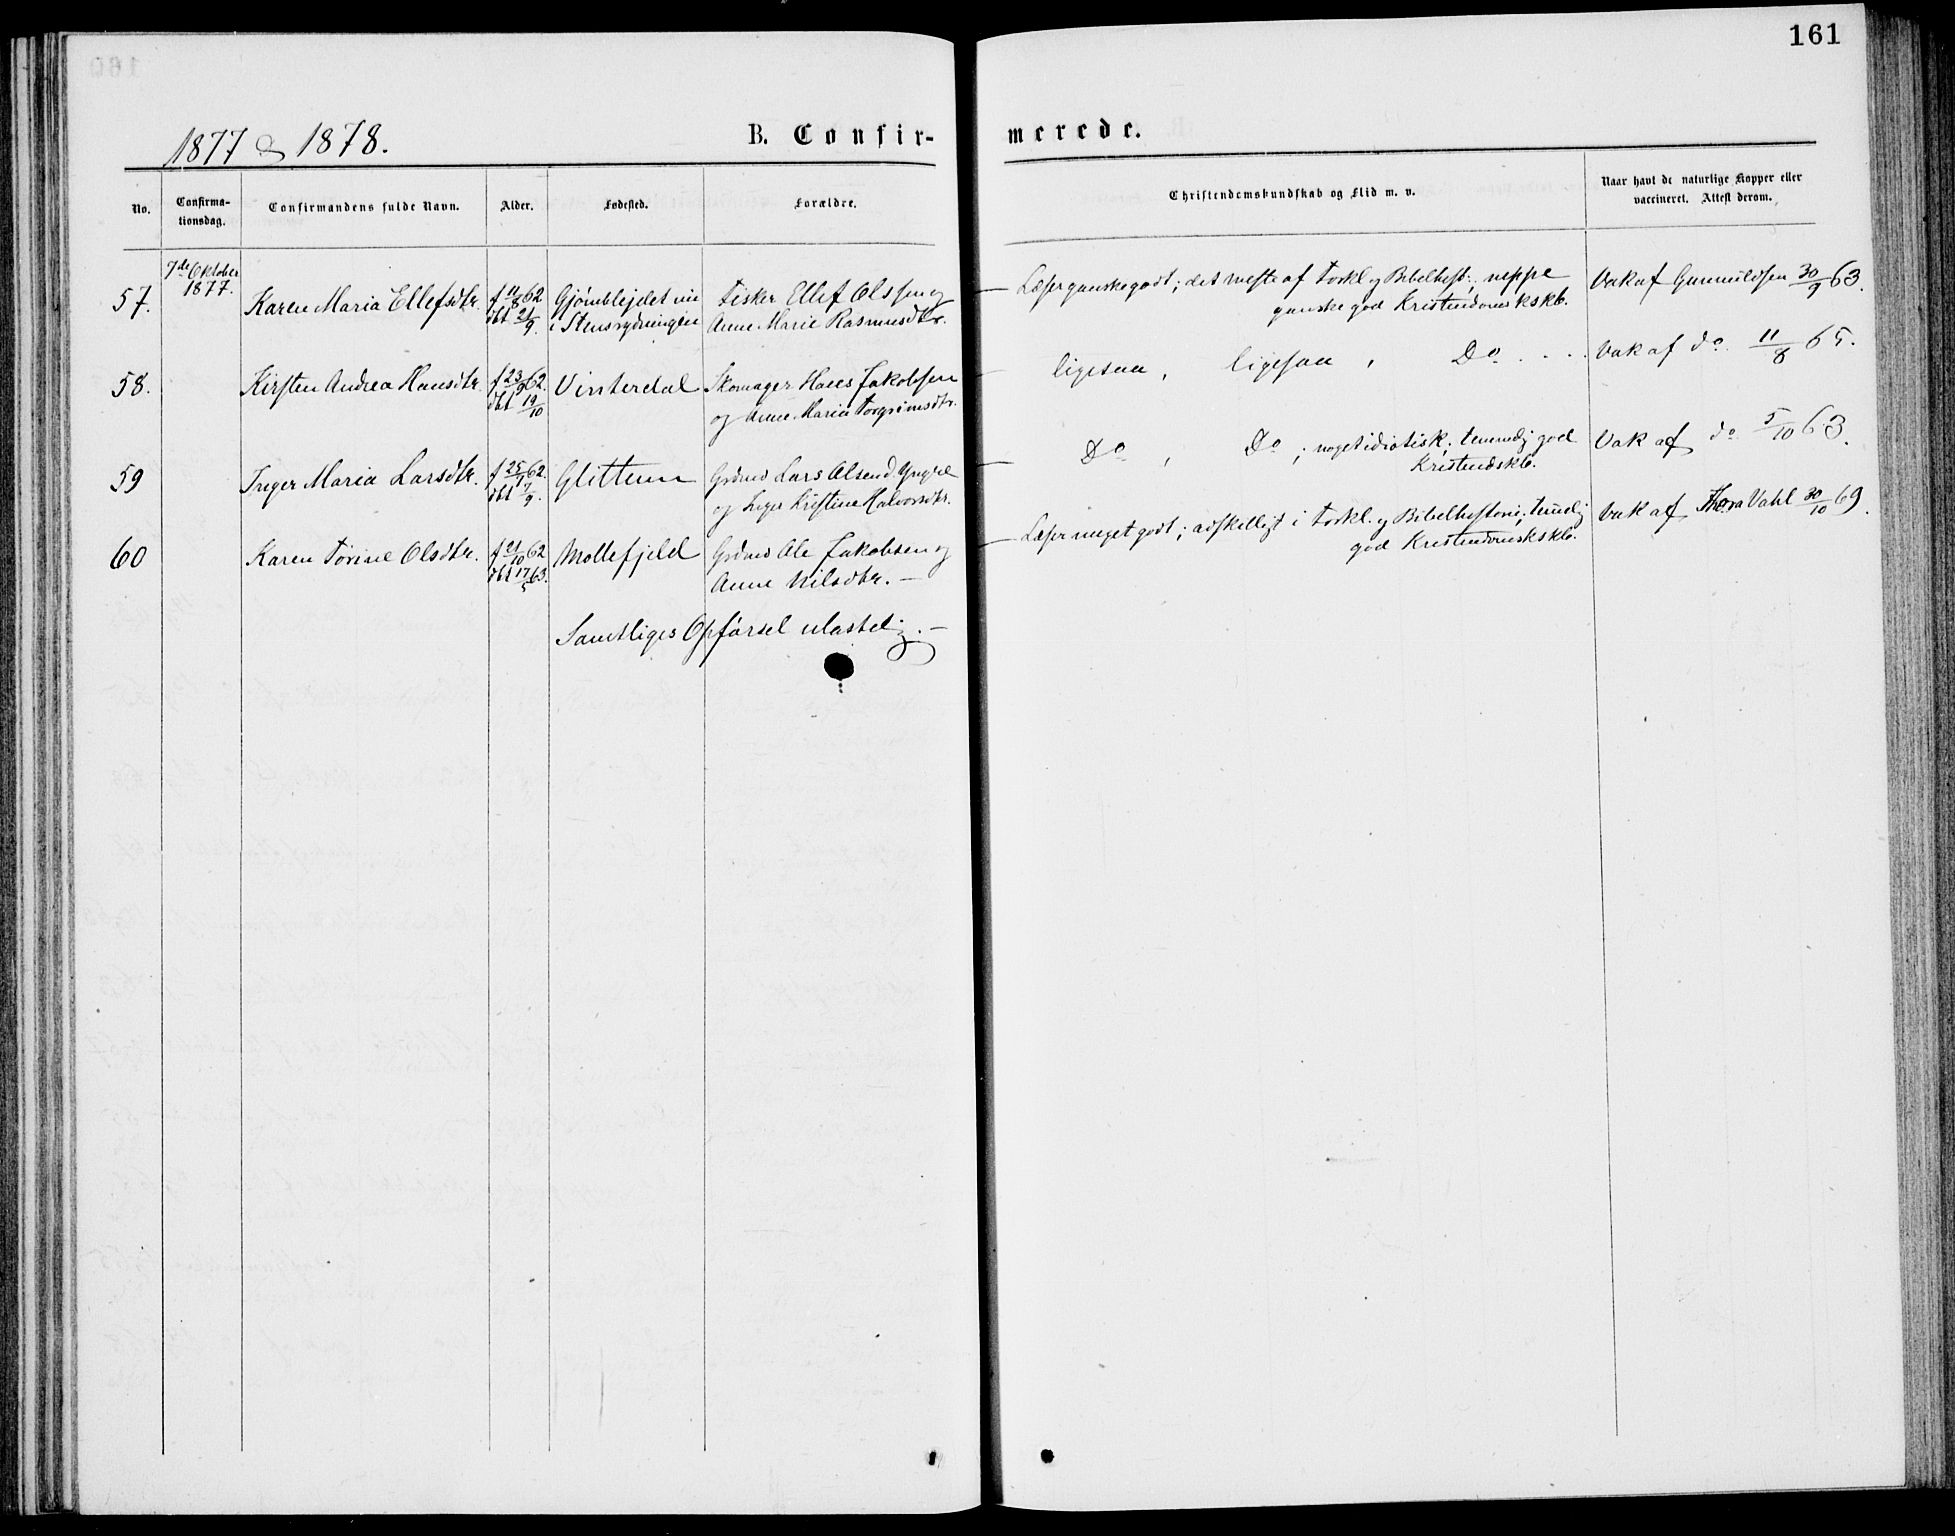 161
1877 & 1878.
B. Confir-
merede.
No.
Confirma-
tionsdag.
Confirmandens fulde Navn.
Alder.
Fødested.
Forældre.
Christendomskundskab og Flid m. v.
Naar havt de naturlige Kopper eller
vaccineret. Attest derom.
7de Oktober
1877.
57.
Karen Maria Ellefsdtr.
f 11/8 62
dbt 21/9.
Gjömblejdet nu
i Stensrydningen
Fisker Ellef Olssen og
Anne Marie Rasmusdtr.
Læser ganske godt; det meste af Forkl. og Bibelhist.; neppe
ganske god Kristendomskskb.
Vak af Gunnuldsen 30/9 63.
58.
Kirsten Andrea Hansdtr.
f 23/9 62.
dbt 19/10
Vinterdal
Skomager Hans Jakobsen
og Anne Maria Torgrimsdtr.
ligesaa, ligesaa, Do . . .
Vak af do. 11/8 65.
59
Inger Maria Larsdtr.
f 25/7 62
dbt 7/9.
Glittum
Grdmd Lars Olsen d. Yngre
og Inger Kristine Halvorsdtr.
Do, Do; noget idiotisk; temmelig god
Kristendskb.
Vak af do. 5/10 63.
60
Karen Törine Olsdtr.
f 21/10 62
dbt 17/5 63.
Mollefjeld
Grdmd Ole Jakobsen og
Anne Nilsdtr. —
Læser meget godt; adskilligt i Forkl. og Bibelhistorie; temelig
god Kristendomskskb.
Vak af Thora Vahl 30/10 69.
Samtliges Opförsel ulastelig. —